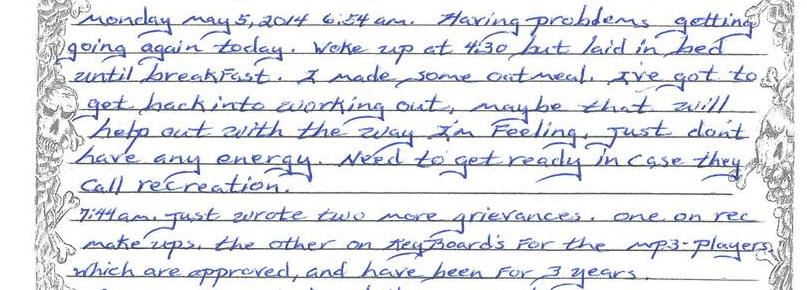 Monday May 5, 2014 6:54 am. Having problems getting
going again today. Woke up at 4:30 but laid in bed
until breakfast. I made some oatmeal. I've got to
get back into working out, maybe that will
help out with the way I'm Feeling. Just don't
have any energy. Need to get ready in case they
call recreation.
7:44 am. Just wrote two more grievances. One on rec
make ups. the other on KeyBoard's For the mp3-players
which are approved, and have been For 3 years.